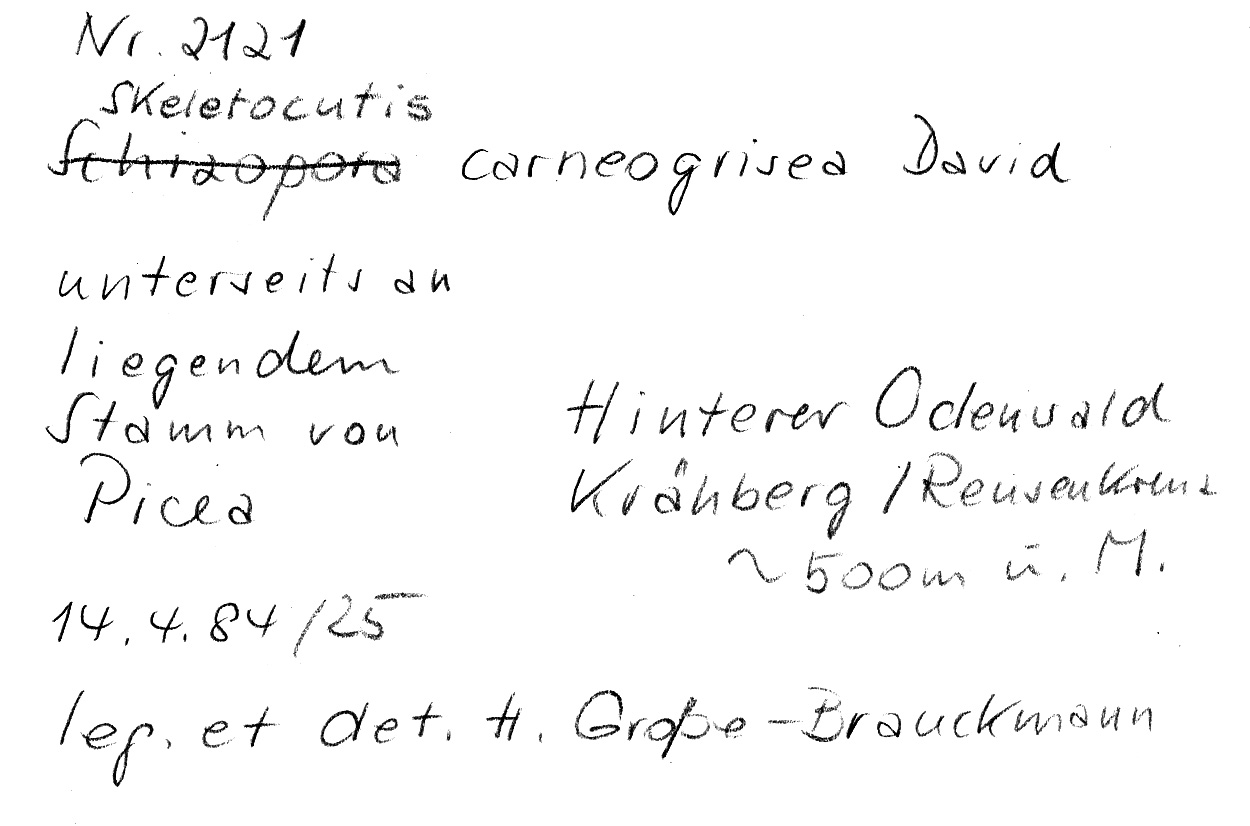 Nr. 2121
Skeletocutis
Schizopora carneogrisea David
unterseits an
liegendem
Stamm von
Picea
Hinterer Odenwald
Krähberg / Reusenkreuz
~ 500m ü. M.
14.4.84 /25
leg. et det. H. Große-Brauckmann